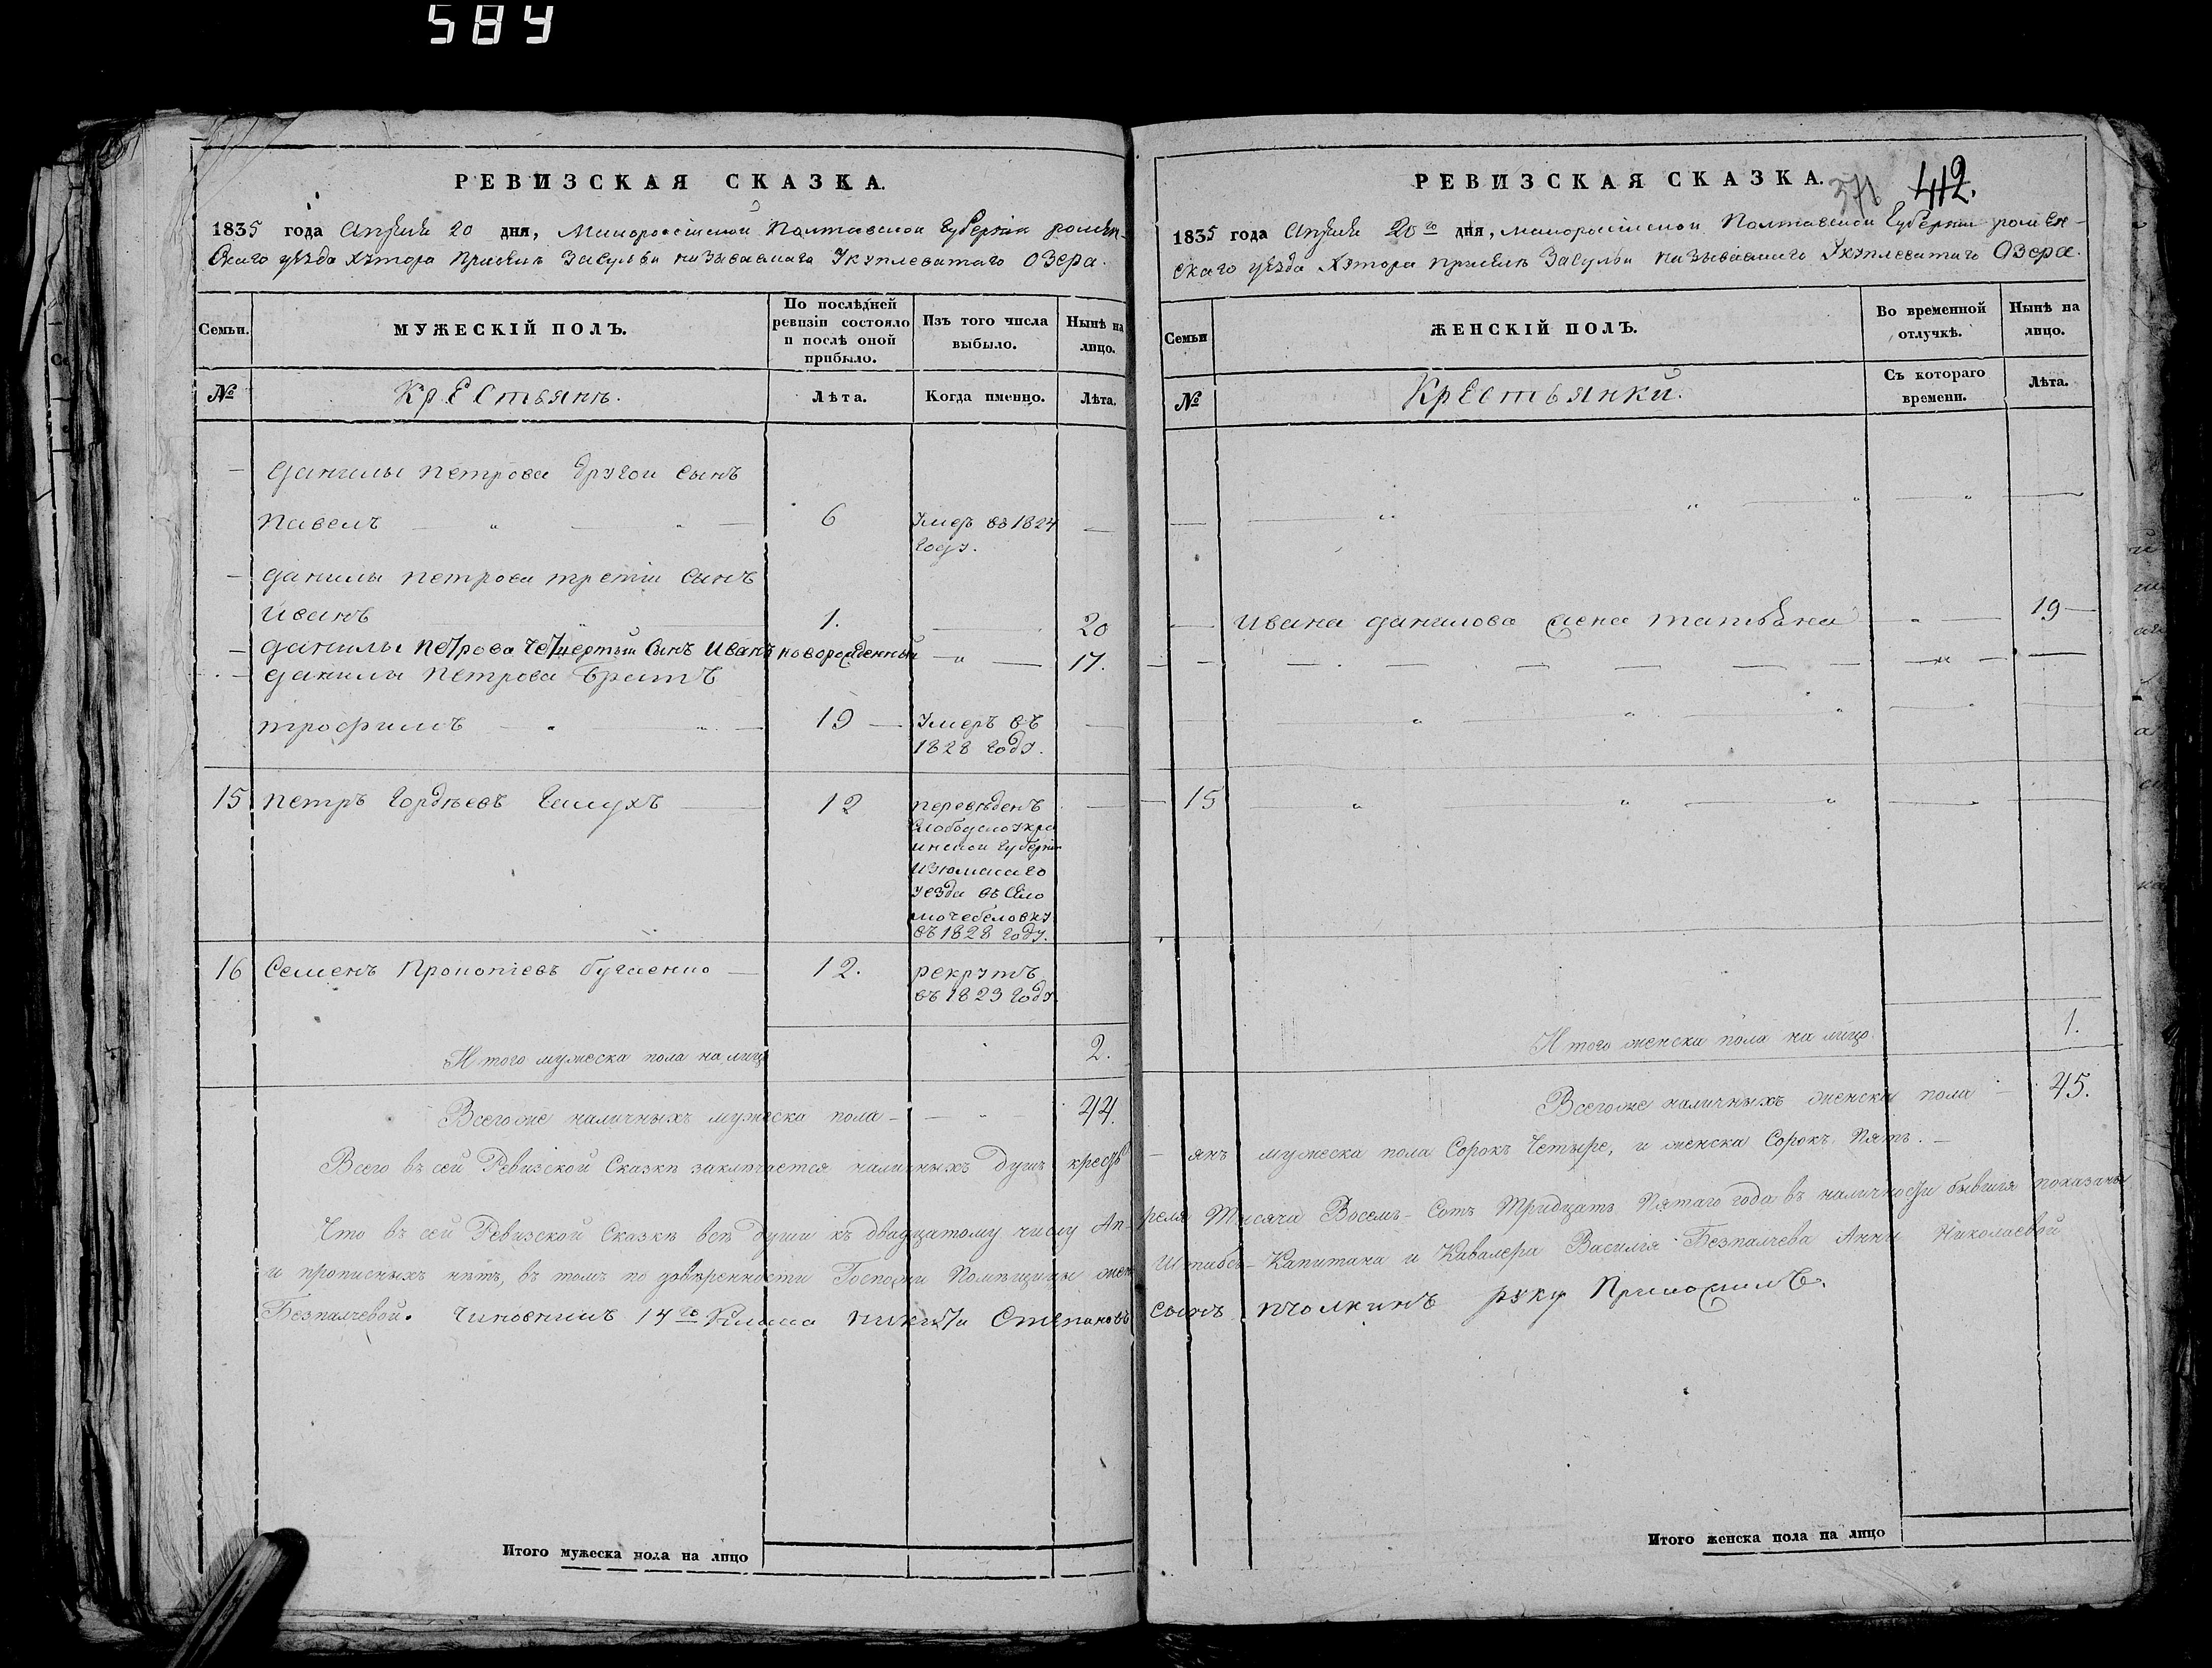 584
РЕВИЗСКАЯ СКАЗКА.
1835 года Апреля 20 дня, Малоросійской Полтавской Губерніи ромен-
скаго уезда хутора при
называемаго
Озера.
Семьи.
МУЖЕСКІЙ ПОЛЪ.
По послѣдней ревизіи состояло и послѣ оной прибыло.
Изъ того числа выбыло.
Нынѣ на лицо.
№
Крестьянъ.
Лѣта.
Когда именно.
Лѣта.
— Данилы Петрова другой сынъ
Павелъ — „ — „ — 6 Умеръ въ 1824 —
году.
— Данилы Петрова третіи сынъ
Иванъ 1. — 20
— Данилы Петрова четвертый сынъ Иванъ новорожденный — „ — 17.
— Данилы Петрова братъ
трофимъ — „ — „ — 19 — Умеръ въ —
1828 году.
15 Петръ Гордѣевъ — 12 переведенъ —
Слободскоукра
инской губерніи
Изюмскаго
уезда въ село
въ 1828 году.
16 Семенъ Прокопіевъ — 12. рекрутъ
въ 1823 году
Итого мужеска пола на лицо 2.
Всегоже наличныхъ мужеска пола — — „ — 44.
РЕВИЗСКАЯ СКАЗКА.
371 412.
1835 года Апреля 20го дня, малоросійской Полтавской Губерніи ромен-
скаго уезда хутора при
называемаго
Озера.
Семьи
ЖЕНСКІЙ ПОЛЪ.
Во временной отлучкѣ.
Нынѣ на лицо.
№
Крестьянки.
Съ котораго времени.
Лѣта.
— Ивана Данилова жена татьяна — „ — 19 —
— 15 „ „ „
Итого женска пола на лицо. 1.
Всегоже наличныхъ женска пола — 45.
Всего въ сей Ревизской Сказкѣ заключается наличныхъ душъ крестьянъ мужеска пола Сорокъ Четыре, и женска Сорокъ Пять. —
Что въ сей Ревизской Сказкѣ всѣ души къ двадцатому числу Апреля Тысяча Восемь-Сотъ Тридцать Пятаго года въ наличности бывшія показаны
и прописныхъ нѣтъ, въ томъ по довѣренности Госпожи Помѣщицы жены Штабсъ-Капитана и Кавалера Василія Безпалчева Анны Николаевой
Безпалчевой. Чиновникъ 14го Класса Никита Степановъ сынъ Пчолкинъ руку Приложилъ.
Итого мужеска пола на лицо
Итого женска пола на лицо